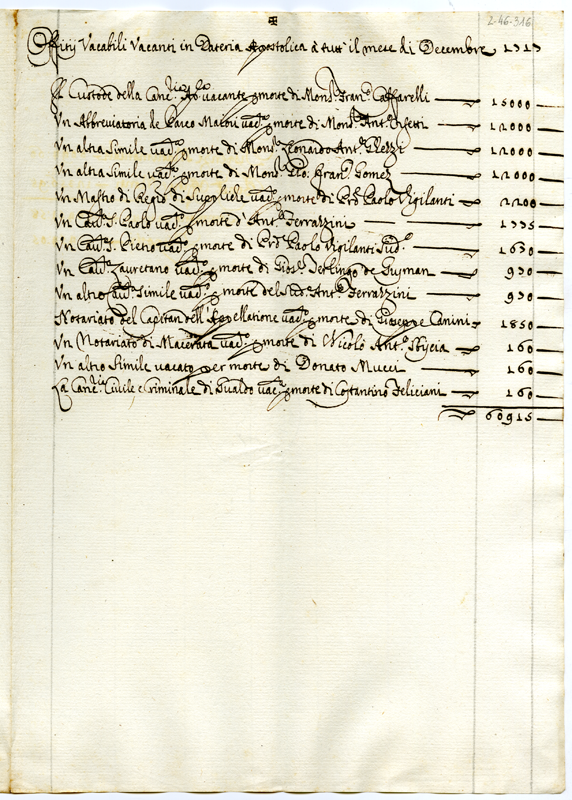 ✠
2-46-316
Offitij Vacabili Vacanti in Dateria Apostolica à tutt' il mese di Decembre 1713
Il Custode della Canc.ria Ap.lica vacante per morte di Mons.r Fran.co Caffarelli 15000
Un Abbreviatoria de Parco Maiori vac.to per morte di Mons.r Ant.o 12000
Un altra Simile vac.ta per morte di Mons.r Leonardo Ant.o 12000
Un altra Simile vac.ta per morte di Mons.r Gio. Fran.co Gomez 12000
Un Mastro di Regio di Supplicle vac.to per morte di Paolo Vigilanti 2200
Un Cav.to S. Paolo vac.to per morte d'Ant.o Ferrazzini 1335
Un Cav.to S. Pietro vac.to per morte di Paolo Vigilanti Sud.o 1630
Un Cav.to Lauretano vac.to per morte di de Guzman 930
Un altro Cav.to Simile vac.to per morte del Sud.o Ant.o Ferrazzini 930
Notariato del Capitan dell'Appellatione vac.to per morte di Giuseppe Canini 1850
Un Notariato di Macerata vac.to per morte di Nicolò Ant.o 160
Un altro Simile vacato per morte di Donato Mucci 160
La Canc.ria Civile e Criminale di Gualdo vac.ta per morte di Costantino Feliciani 160
60915